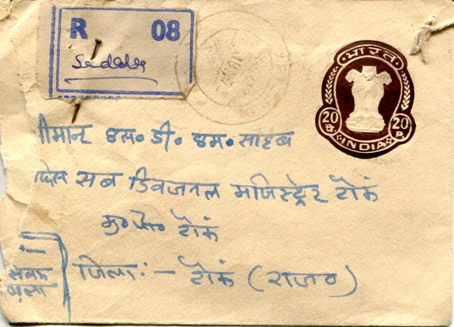 R 08
भारत
20 20
INDIA
श्रीमान एस० डी० एम० साहब
सब डिवजनल मजिस्ट्रेट टोंक
मु० पो० टोंक
जिला:- टोंक (राज०)